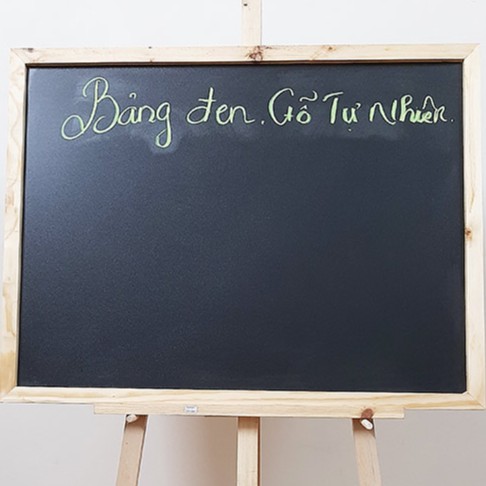 Bảng đen. Gỗ Tự Nhiên.